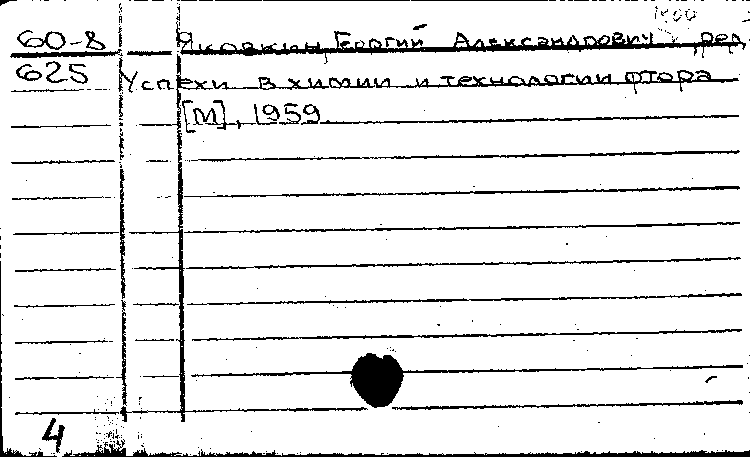 60-8 Яковкин, Георгий Александрович, ред,
625 Успехи в химии и технологии фтора
[М], 1959.
4